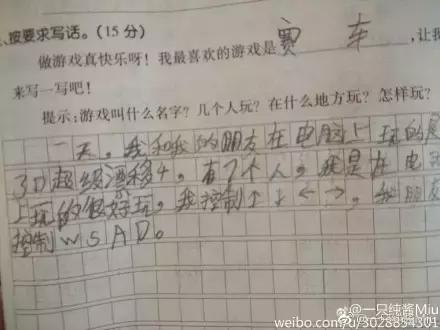 、按要求写话。(15 分)
做游戏真快乐呀！我最喜欢的游戏是赛车,让我
来写一写吧！
提示:游戏叫什么名字？几个人玩？在什么地方玩？怎样玩？
一天，我和我的朋友在电脑上玩的是
3D超级漂移4，有2个人，我是在电
上玩的很好玩，我控制↑↓←→，我朋
控制WSAD。
@一只纯酱Miu
weibo.com/u/3028854301